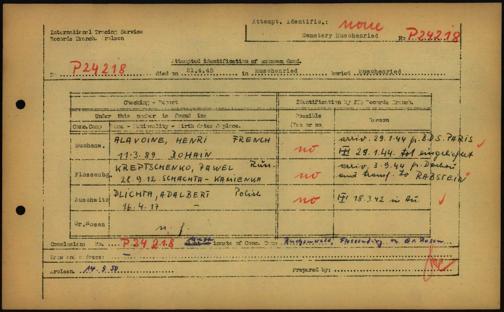 Attempt. Identific.: none
International Tracing Service
Records Branch. Arolsen
Cemetery Muschenried No P24218
Attempted identification of unknown dead.
No P24218 died on 21.4.45 in Muschenried buried Muschenried
Checking - Report
Identification by ITS Records Branch.
Under this number is found in:
Possible
Reason
Conc.Camp Name - Nationality - Birth date & place.
Yes or no
Buchenw. ALAVOINE, HENRI FRENCH
11.3.89 BOHAIN
no
arriv. 29.1.44 fr. B.D.S. PARIS
29.1.44 Tot eingeliefert
Flossenbg. KREPTSCHENKO, PAWEL Russ.
28.9.12 SCHACHTA - KAMIENKA
no
arriv. 3.9.44 fr. Dachau
and transf. to RABSTEIN
Auschwitz DLICHTA, ADALBERT Polish
16.4.17 -
no
18.3.42 in Au
Gr.Rosen n.f.
Conclusion: No. P24218 inmate of Conc. Camp Buchenwald, Flossenbürg or Gr. Rosen
Arolsen 14.9.50
Prepared by: